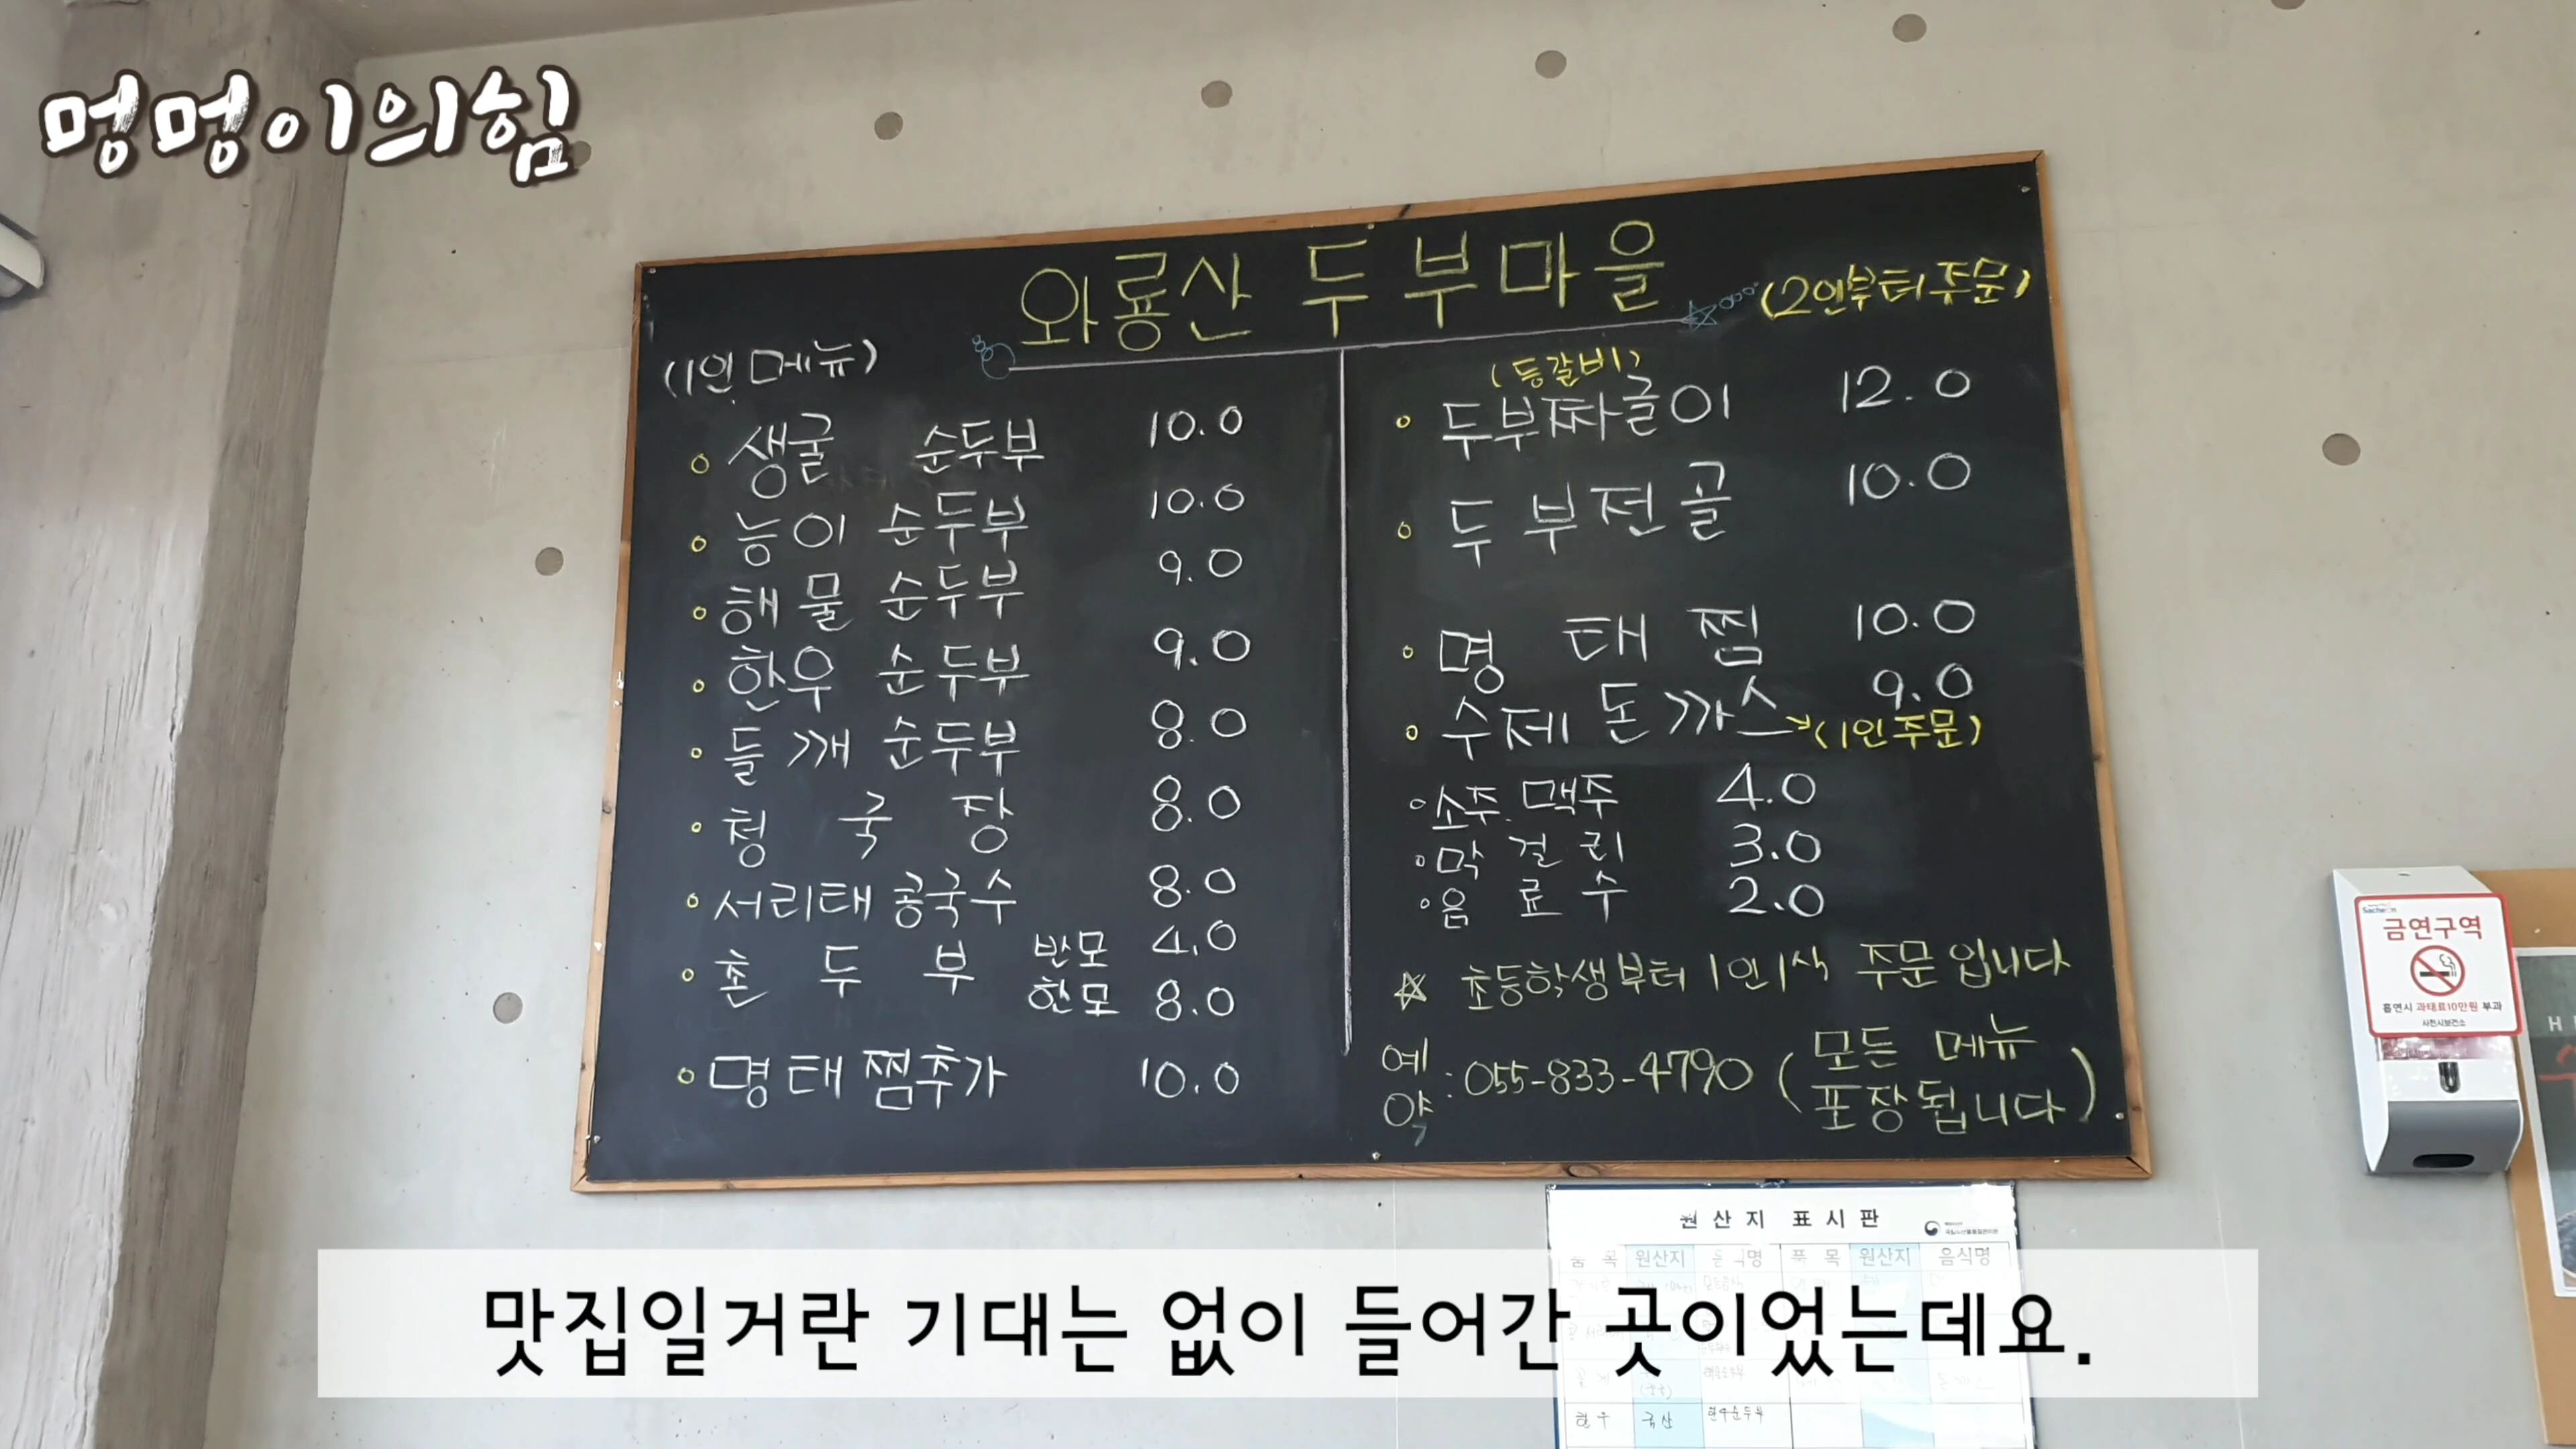 멍멍이의힘
와룡산 두부마을
(1인 메뉴)
생굴 순두부 10.0
능이 순두부 10.0
해물 순두부 9.0
한우 순두부 9.0
들깨 순두부 8.0
청국장 8.0
서리태 콩국수 8.0
촌두부 반모 4.0
한모 8.0
명태찜추가 10.0
(2인부터 주문)
(등갈비)
두부짜글이 12.0
두부전골 10.0
명태찜 10.0
수제 돈까스 9.0
→(1인 주문)
소주. 맥주 4.0
막걸리 3.0
음료수 2.0
☆ 초등학생부터 1인 1식 주문입니다
예약 : 055-833-4790 (모든 메뉴
포장됩니다)
금연구역
흡연시 과태료10만원 부과
사천시보건소
원산지 표시판
품목 원산지 음식명 품목 원산지 음식명
맛집일거란 기대는 없이 들어간 곳이었는데요.
한우 국산 한우순두부